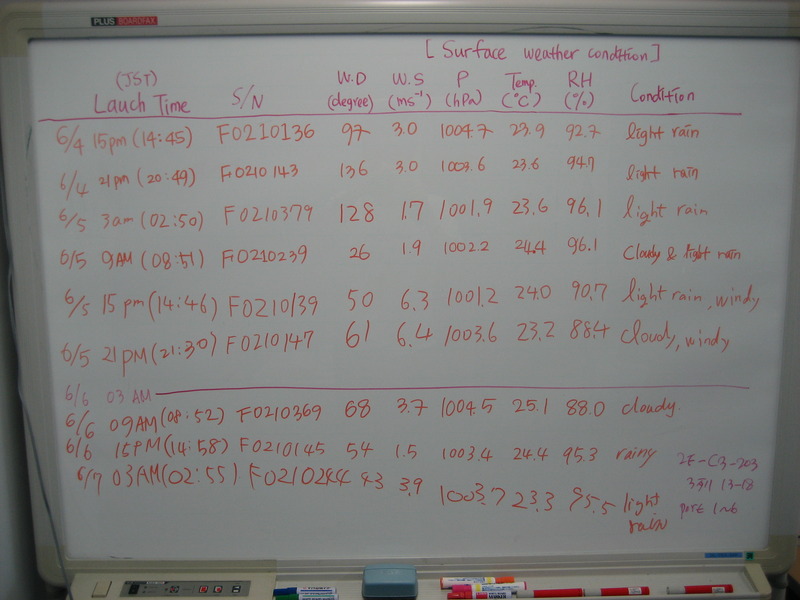 PLUS BOARDFAX
[Surface weather condition]
(JST) Lauch Time S/N W.D (degree) W.S (ms⁻¹) P (hPa) Temp. (°C) RH (%) Condition
6/4 15pm (14:45) F0210136 97 3.0 1004.7 23.9 92.7 light rain
6/4 21pm (20:49) F0210143 136 3.0 1003.6 23.6 94.7 light rain
6/5 3am (02:50) F0210379 128 1.7 1001.9 23.6 96.1 light rain
6/5 9AM (08:51) F0210239 26 1.9 1002.2 24.4 96.1 Cloudy & light rain
6/5 15pm (14:46) F0210139 50 6.3 1001.2 24.0 90.7 light rain, windy
6/5 21PM (21:30) F0210147 61 6.4 1003.6 23.2 88.4 cloudy, windy
6/6 03 AM
6/6 09AM (08:52) F0210369 68 3.7 1004.5 25.1 88.0 cloudy.
6/6 15PM (14:58) F0210145 54 1.5 1003.4 24.4 95.3 rainy
6/7 03AM (02:55) F0210244 43 3.9 1003.7 23.3 95.5 light rain
2F-C3-203
13-18
port 1~6